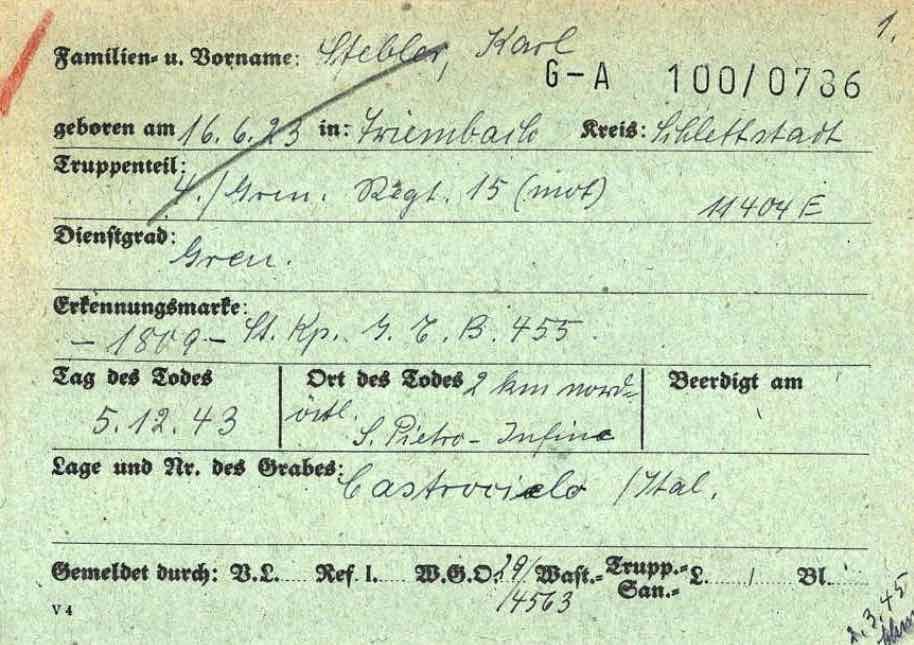 1.
Familien- u. Vorname: Stebler, Karl
G-A 100/0786
geboren am 16.6.23 in: Triembach Kreis: Schlettstadt
Truppenteil:
4./Gren. Regt. 15 (mot)
11404 E
Dienstgrad:
Gren.
Erkennungsmarke:
- 1809 - St. Kp. G. E. B. 455
Tag des Todes Ort des Todes 2 km nord- Beerdigt am
5.12.43 östl.
S. Pietro - Infine
Lage und Nr. des Grabes: Castrocielo /Ital.
Gemeldet durch: V.L. Ref. I. W.G.O. 29/ Wast.- Trupp.- L. / Bl.
San.-
14563
V 4
2.3.45